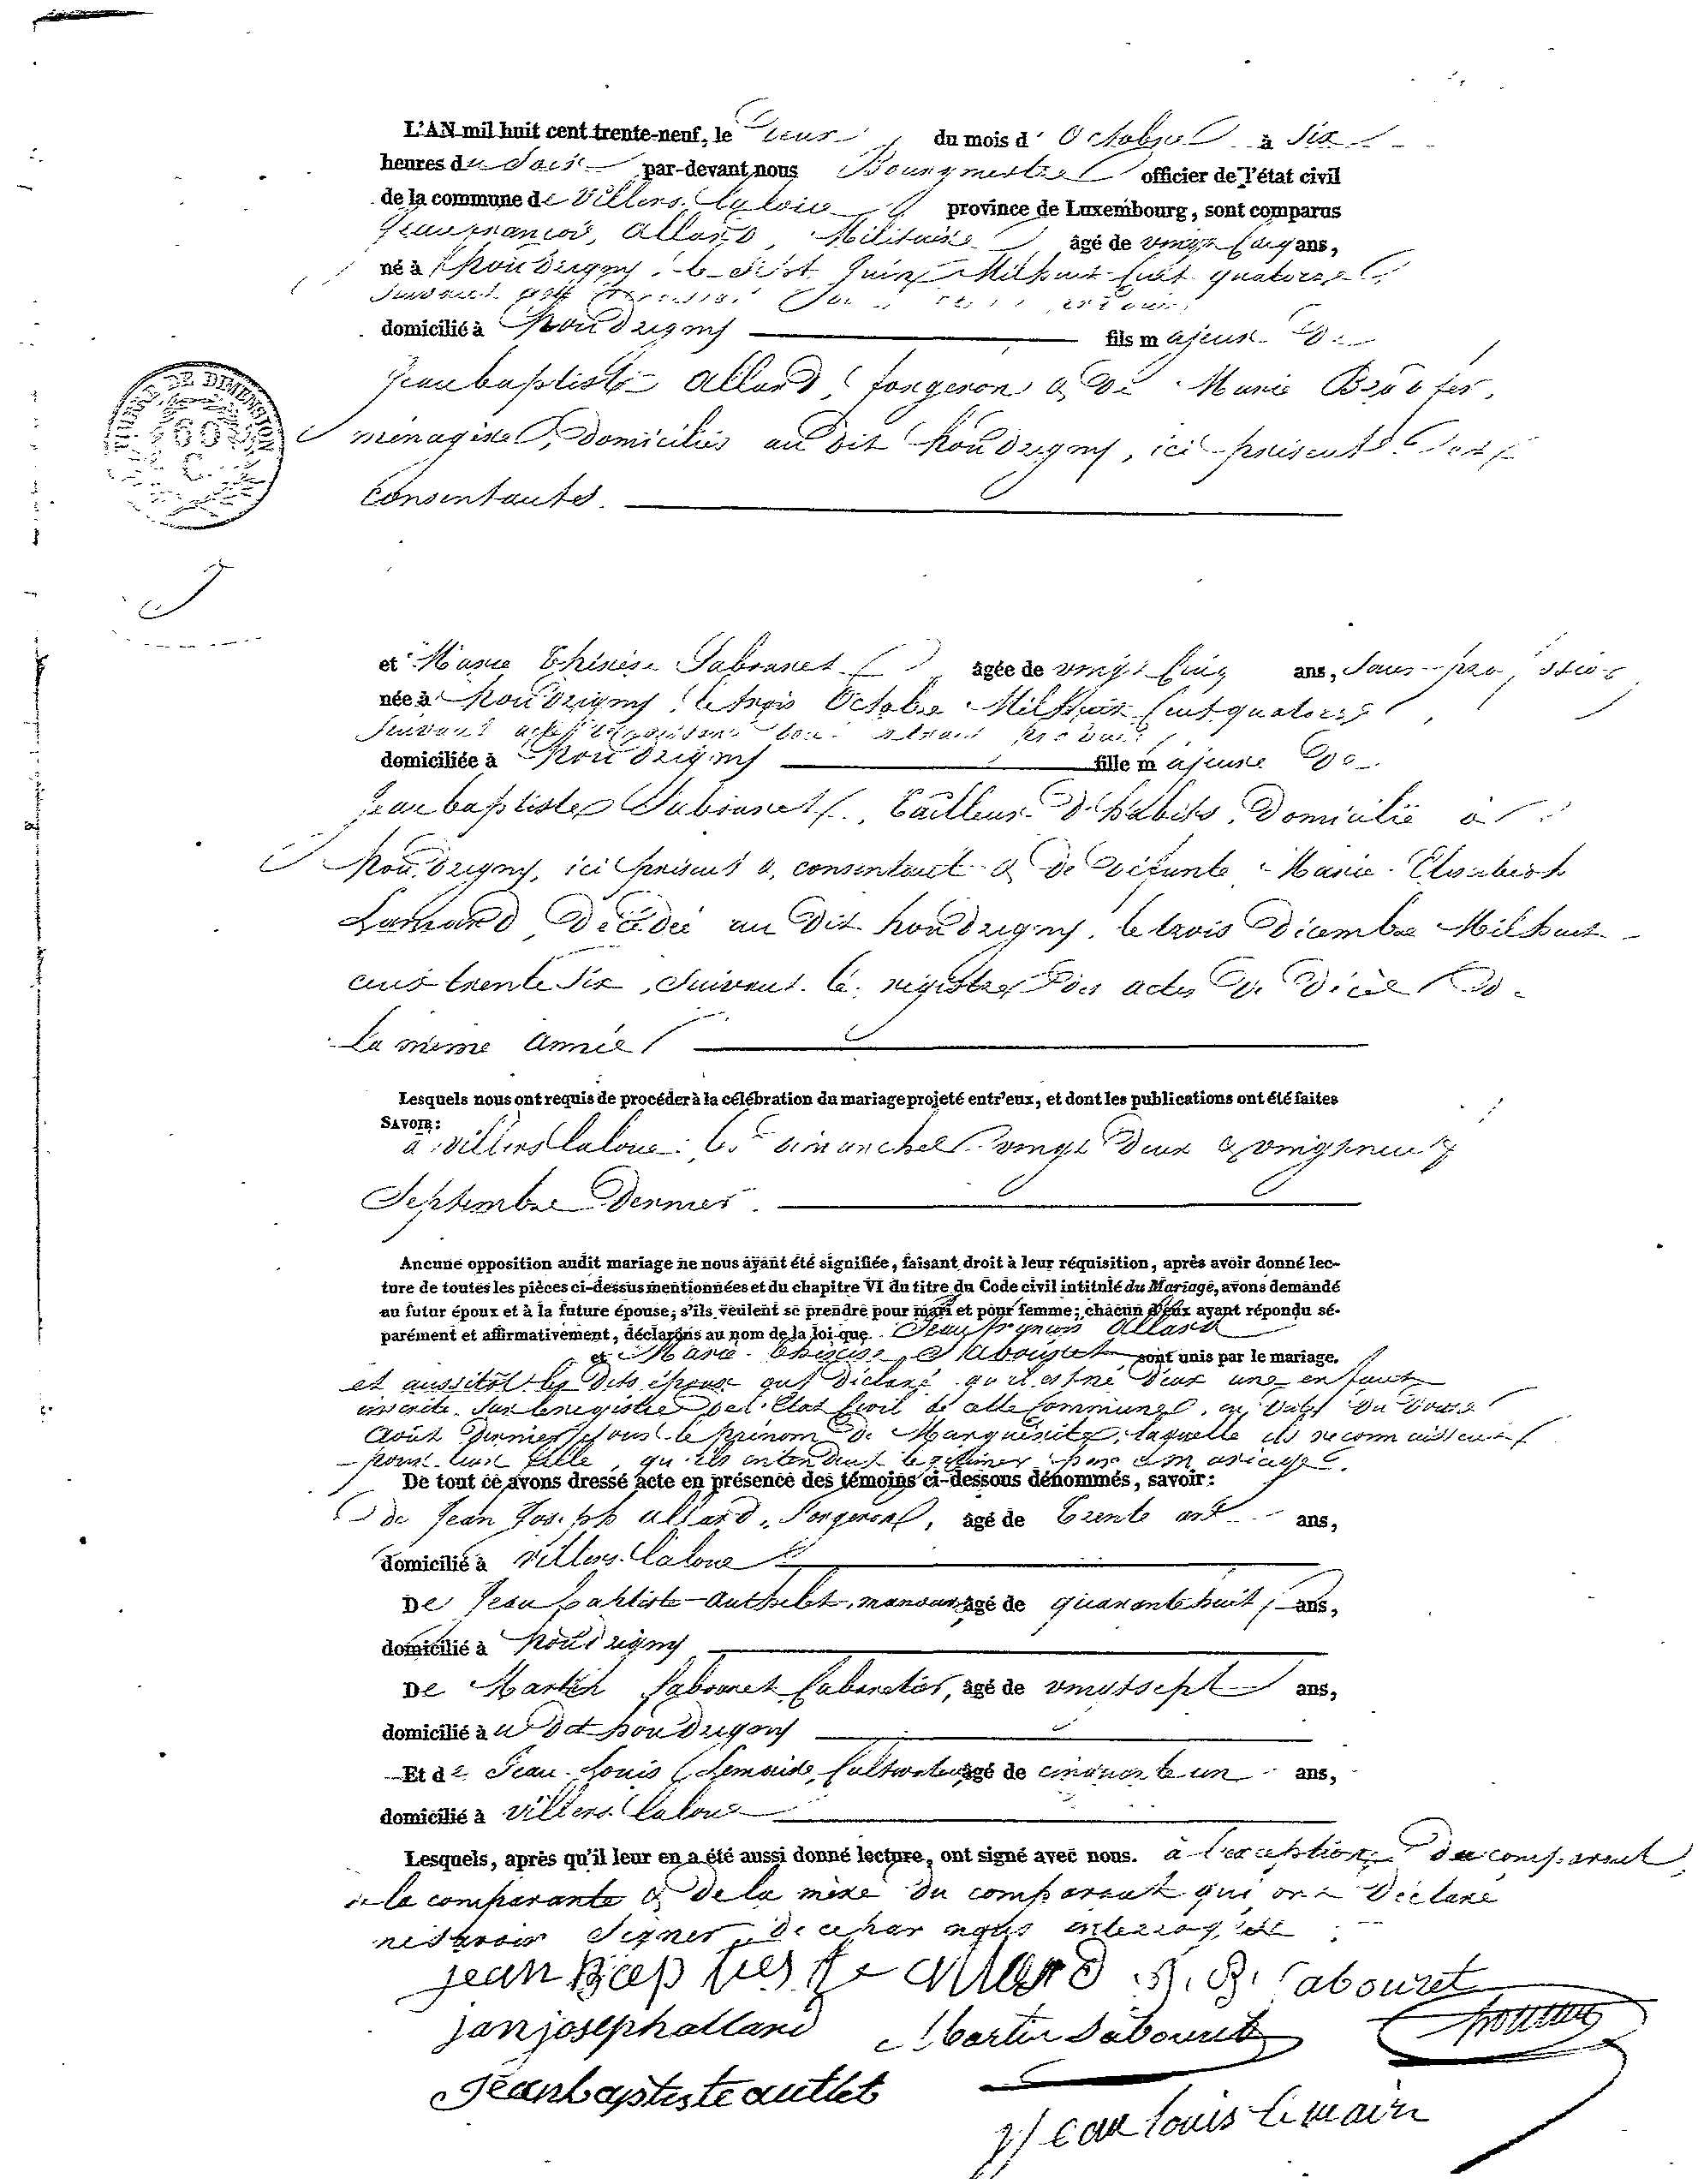 L'AN mil huit cent trente-neuf, le deux du mois d'Octobre à Six
heures du Soir par-devant nous Bourgmestre officier de l'état civil
de la commune de Villers laloue province de Luxembourg, sont comparus
Jean françois Allard, Militaire âgé de vingt cinq ans,
né à houdrigny, le Sept Juin Mil huit Cent quatorze
Suivant acte
domicilié à houdrigny fils majeur De
Jean baptiste allard, forgeron & De Marie
ménagère, Domiciliés au dit houdrigny, ici présents et
consentants.
TIMBRE DE DIMENSION
60
C.
et Marie Thérèse Sabouret âgée de vingt cinq ans, Sans profession
née à houdrigny, le trois Octobre Mil huit Cent quatorze
Suivant acte
domiciliée à houdrigny fille majeure De
Jean baptiste Sabouret, Tailleur d'habits, Domicilié à
houdrigny, ici présent & consentant & De Défunte Marie Elisabeth
Lamard, Décédée au Dit houdrigny, le trois Décembre Mil huit
cent trente Six, Suivant le régistre Des actes De Décès De
la même année
Lesquels nous ont requis de procéder à la célébration du mariage projeté entr'eux, et dont les publications ont été faites
SAVOIR:
à villers laloue les dimanches vingt Deux & vingt neuf
Septembre Dernier.
Aucune opposition audit mariage ne nous ayant été signifiée, faisant droit à leur réquisition, après avoir donné lec-
ture de toutes les pièces ci-dessus mentionnées et du chapitre VI du titre du Code civil intitulé du Mariage, avons demandé
au futur époux et à la future épouse, s'ils veulent se prendre pour mari et pour femme; chacun d'eux ayant répondu sé-
parément et affirmativement, déclarons au nom de la loi que Jean françois Allard
et Marie Thérèse Sabouret sont unis par le mariage.
et aussitôt les Dits époux ont Déclaré qu'il est né D'eux une enfant
inscrite Sur le registre De l'Etat Civil de cette Commune, en Date Du Douze
Août Dernier, Sous le prénom De Marguerite, laquelle ils reconnaissent
pour leur fille, qu'ils entendent légitimer par ce mariage.
De tout ce avons dressé acte en présence des témoins ci-dessous dénommés, savoir:
de Jean Joseph allard, forgeron, âgé de Trente ans,
domicilié à Villers laloue
De Jean baptiste authelet, manouvrier âgé de quarante huit ans,
domicilié à houdrigny
De Martin Sabouret Cabaretier, âgé de vingt sept ans,
domicilié audit houdrigny
Et de Jean Louis Lemaire, Cultivateur âgé de cinquante un ans,
domicilié à villers laloue
Lesquels, après qu'il leur en a été aussi donné lecture, ont signé avec nous. à l'exception du comparant
de la comparante & de la mère du comparant qui ont Déclaré
ne Savoir Signer, de ce par nous interrogés
jean Baptieste allard J. B. Sabouret
jan joseph allard Martin Sabouret
Jean baptiste autlet
Jean louis lemaire